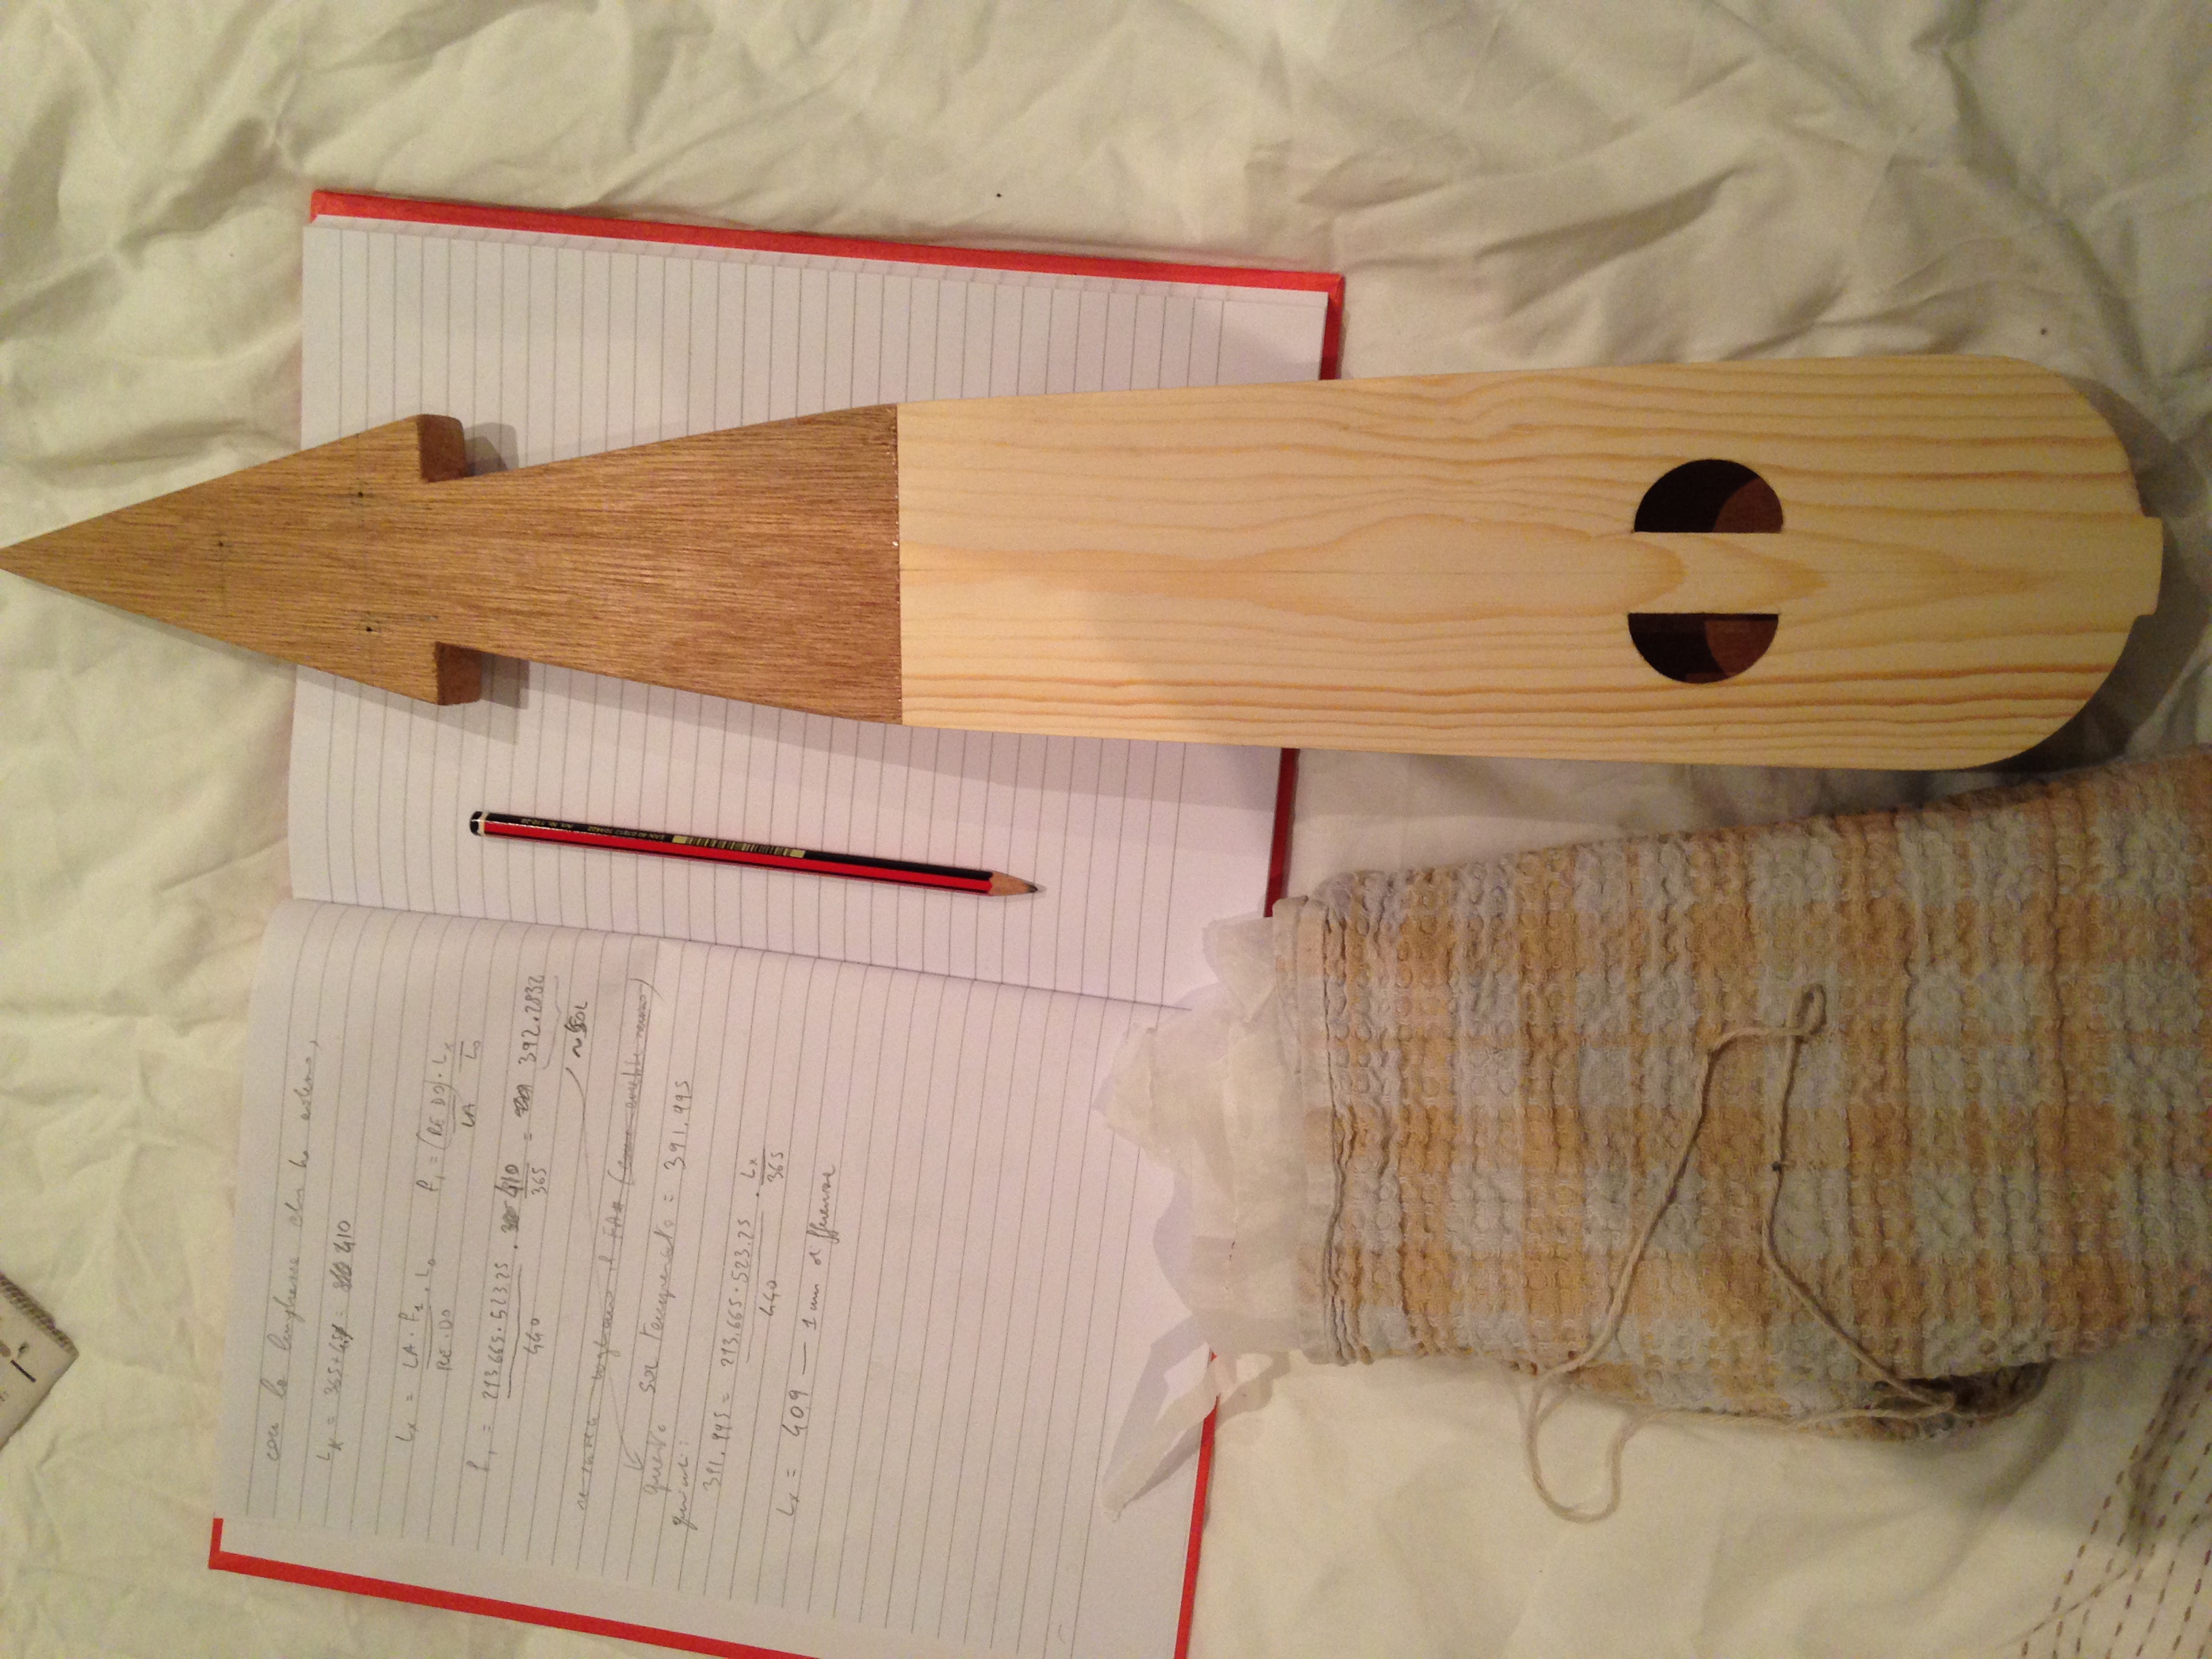 con la lunghezza che ho adesso,
Lx = 365+45 = 410
Lx = LA · f1 / RE · DO · L0    f1 = (RE · DO) / LA · Lx / L0
f1 = 293.665 · 523.25 / 440 · 410 / 365 = 392.2832
~ SOL
FA#
questo SOL temperato = 391.995
quindi:
391.995 = 293.665 · 523.25 / 440 · Lx / 365
Lx = 409 — 1 mm differenza